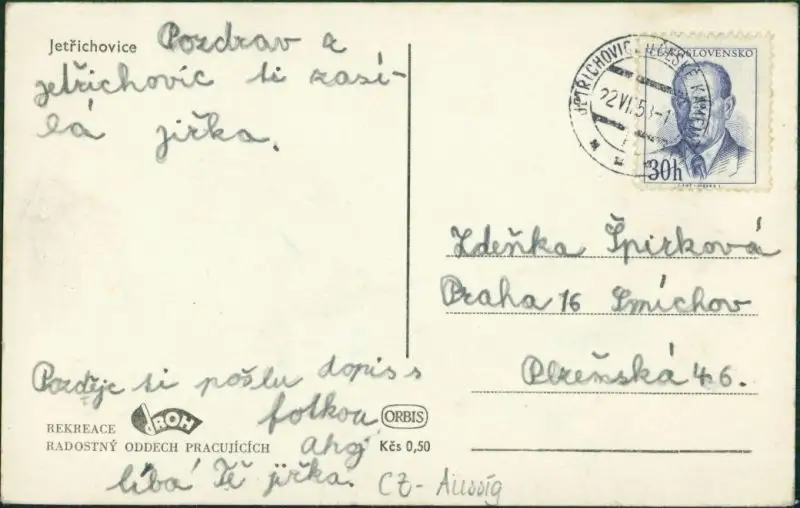 Jetřichovice Pozdrav z
jetřichovic ti zasí-
lá jirka.
ČESKOSLOVENSKO
30h
JETŘICHOVICE U ČESKÉ KAMENICE
22 VI. 5
Zdeňka Špirková
Praha 16 Smíchov
Plzeňská 46.
Pozděje ti pošlu dopis s
fotkou
ahoj
líbá Tě jirka.
REKREACE ROH
RADOSTNÝ ODDECH PRACUJÍCÍCH
ORBIS
Kčs 0,50
CZ- Aussig